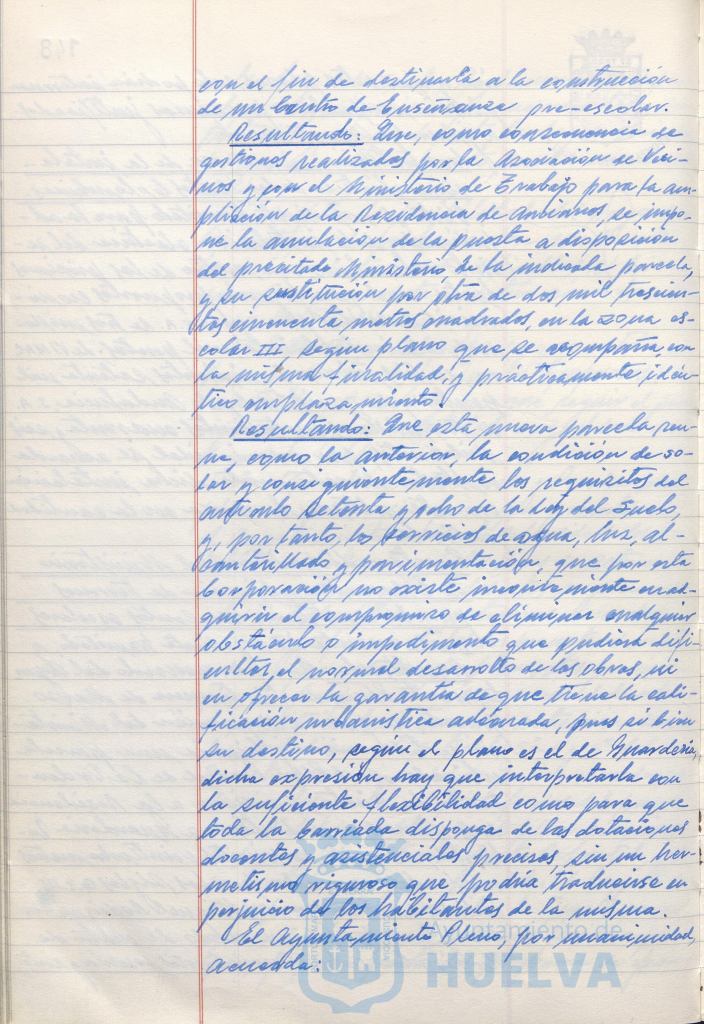 con el fin de destinarla a la construcción
de un Centro de Enseñanza pre-escolar.
Resultando: Que, como consecuencia de
gestiones realizadas por la Asociación de Veci-
nos y con el Ministerio de Trabajo para la am-
pliación de la Residencia de Ancianos, se impo-
ne la anulación de la puesta a disposición
del precitado Ministerio, de la indicada parcela,
y su sustitución por otra de dos mil trescien-
tos cincuenta metros cuadrados, en la zona es-
colar III, según plano que se acompaña, con
la misma finalidad, y prácticamente idén-
tico emplazamiento.
Resultando: Que esta nueva parcela reu-
ne, como la anterior, la condición de so-
lar y consiguientemente los requisitos del
artículo setenta y ocho de la Ley del Suelo,
y, por tanto, los servicios de agua, luz, al-
cantarillado y pavimentación, que por esta
Corporación no existe inconveniente en ad-
quirir el compromiso de eliminar cualquier
obstáculo o impedimento que pudiera difi-
cultar el normal desarrollo de las obras, ni
en ofrecer la garantía de que tiene la cali-
ficación urbanística adecuada, pues si bien
su destino, según el plano es el de Guardería,
dicha expresión hay que interpretarla con
la suficiente flexibilidad como para que
toda la barriada disponga de las dotaciones
docentes y asistenciales precisas, sin un her-
metismo riguroso que podría traducirse en
perjuicio de los habitantes de la misma.
El Ayuntamiento Pleno, por unanimidad,
acuerda:
Ayuntamiento de
HUELVA